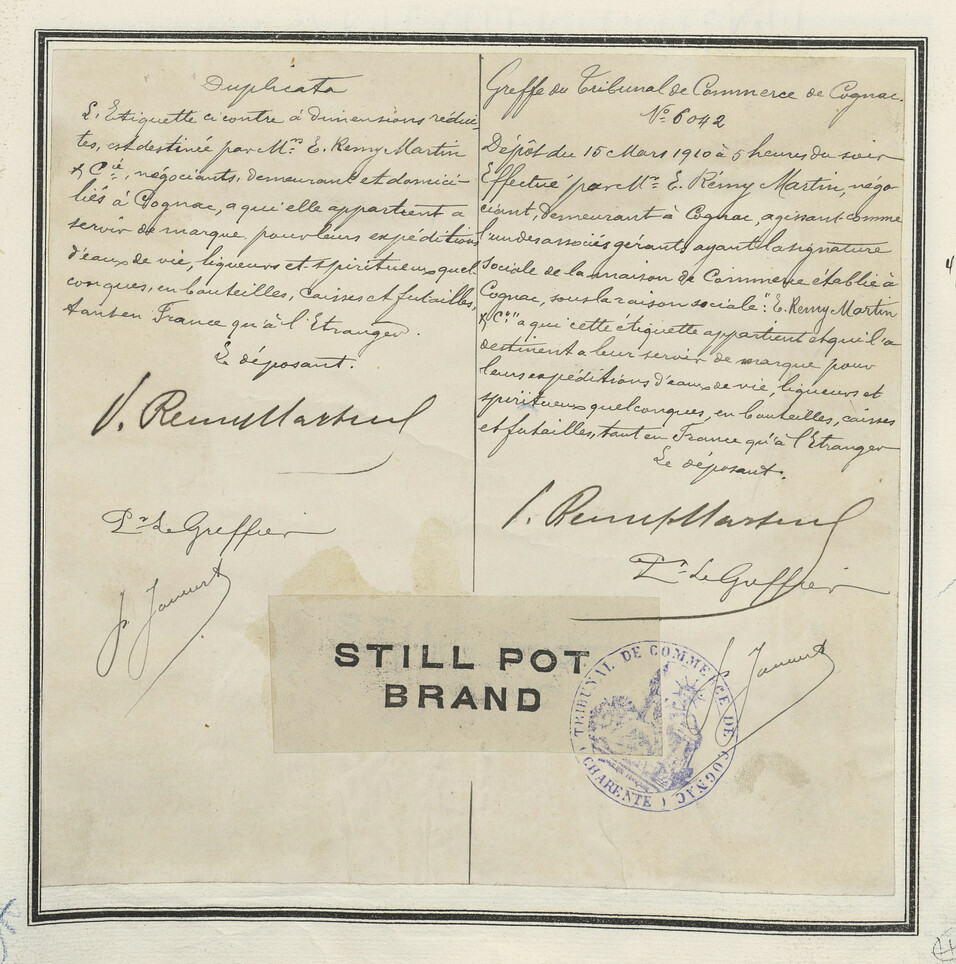 Duplicata
L'Etiquette ci contre à dimensions rédui-
tes, est destinée par Mrs E. Remy Martin
& Cie, négociants, demeurant et domici-
liés à Cognac, a qui elle appartient a
servir de marque pour leurs expéditions
d'eaux de vie, liqueurs et spiritueux quel
conques, en bouteilles, caisses et futailles,
tant en France qu'à l'Etranger.
Le déposant.
Remy Martin
Pr Le Greffier
Greffe du Tribunal de Commerce de Cognac.
No 6042
Dépôt du 15 Mars 1910 à 5 heures du soir
Effectué par Mr E. Rémy Martin, négo-
ciant, demeurant à Cognac, agissant comme
l'un des associés gérants ayant la signature
sociale de la maison de Commerce établie à
Cognac, sous la raison sociale: "E. Remy Martin
& Cie" a qui cette étiquette appartient et qui l'a
destinent a leur servir de marque pour
leurs expéditions d'eaux de vie, liqueurs et
spiritueux quelconques, en bouteilles, caisses
et futailles, tant en France qu'à l'Etranger
Le déposant.
Remy Martin
Pr Le Greffier
STILL POT
BRAND
TRIBUNAL DE COMMERCE DE COGNAC
(CHARENTE)